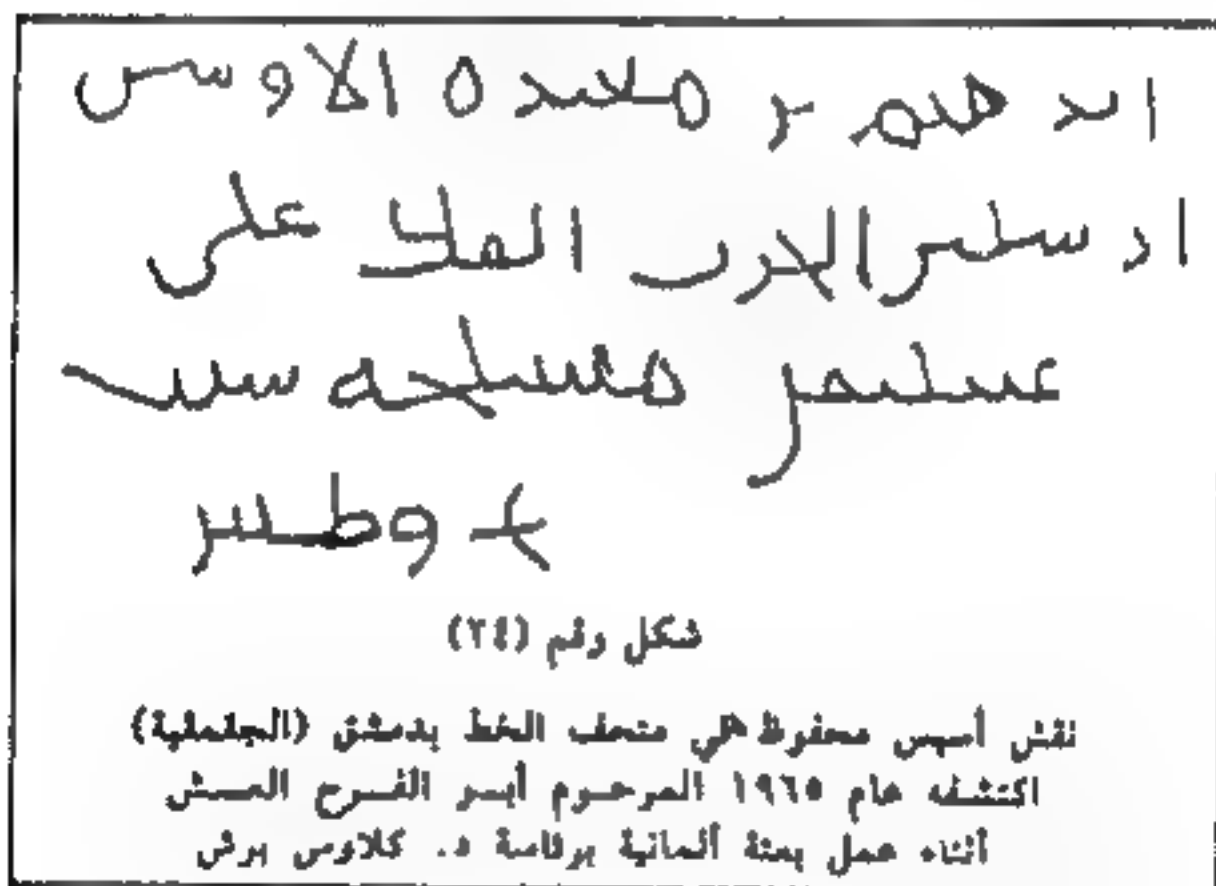 ابرهيم بر مغيره الاوسي
ارسلني الحرث الملك على
مسلحه سنت
شكل رقم (٢٤)
نقش أسيس محفوظ في متحف الخط بدمشق (الجقمقية)
اكتشفه عام ١٩٦٥ المرحوم أبو الفرج العش
أثناء عمل بعثة ألمانية برئاسة د. كلاوس برش